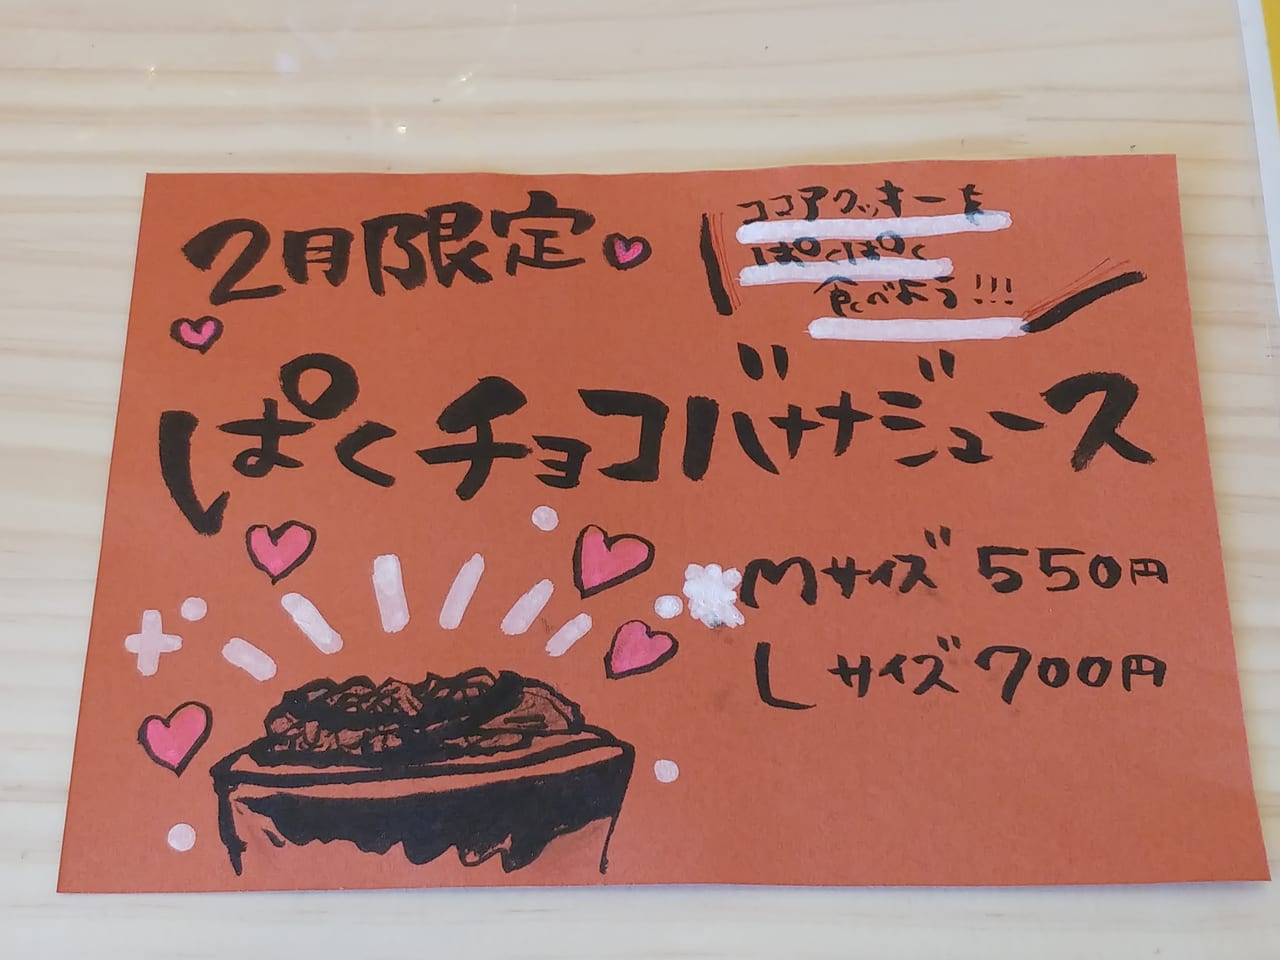 2月限定
ココアクッキーを
ぱくぱく
食べよう!!!
ぱくチョコバナナジュース
Mサイズ 550円
Lサイズ 700円